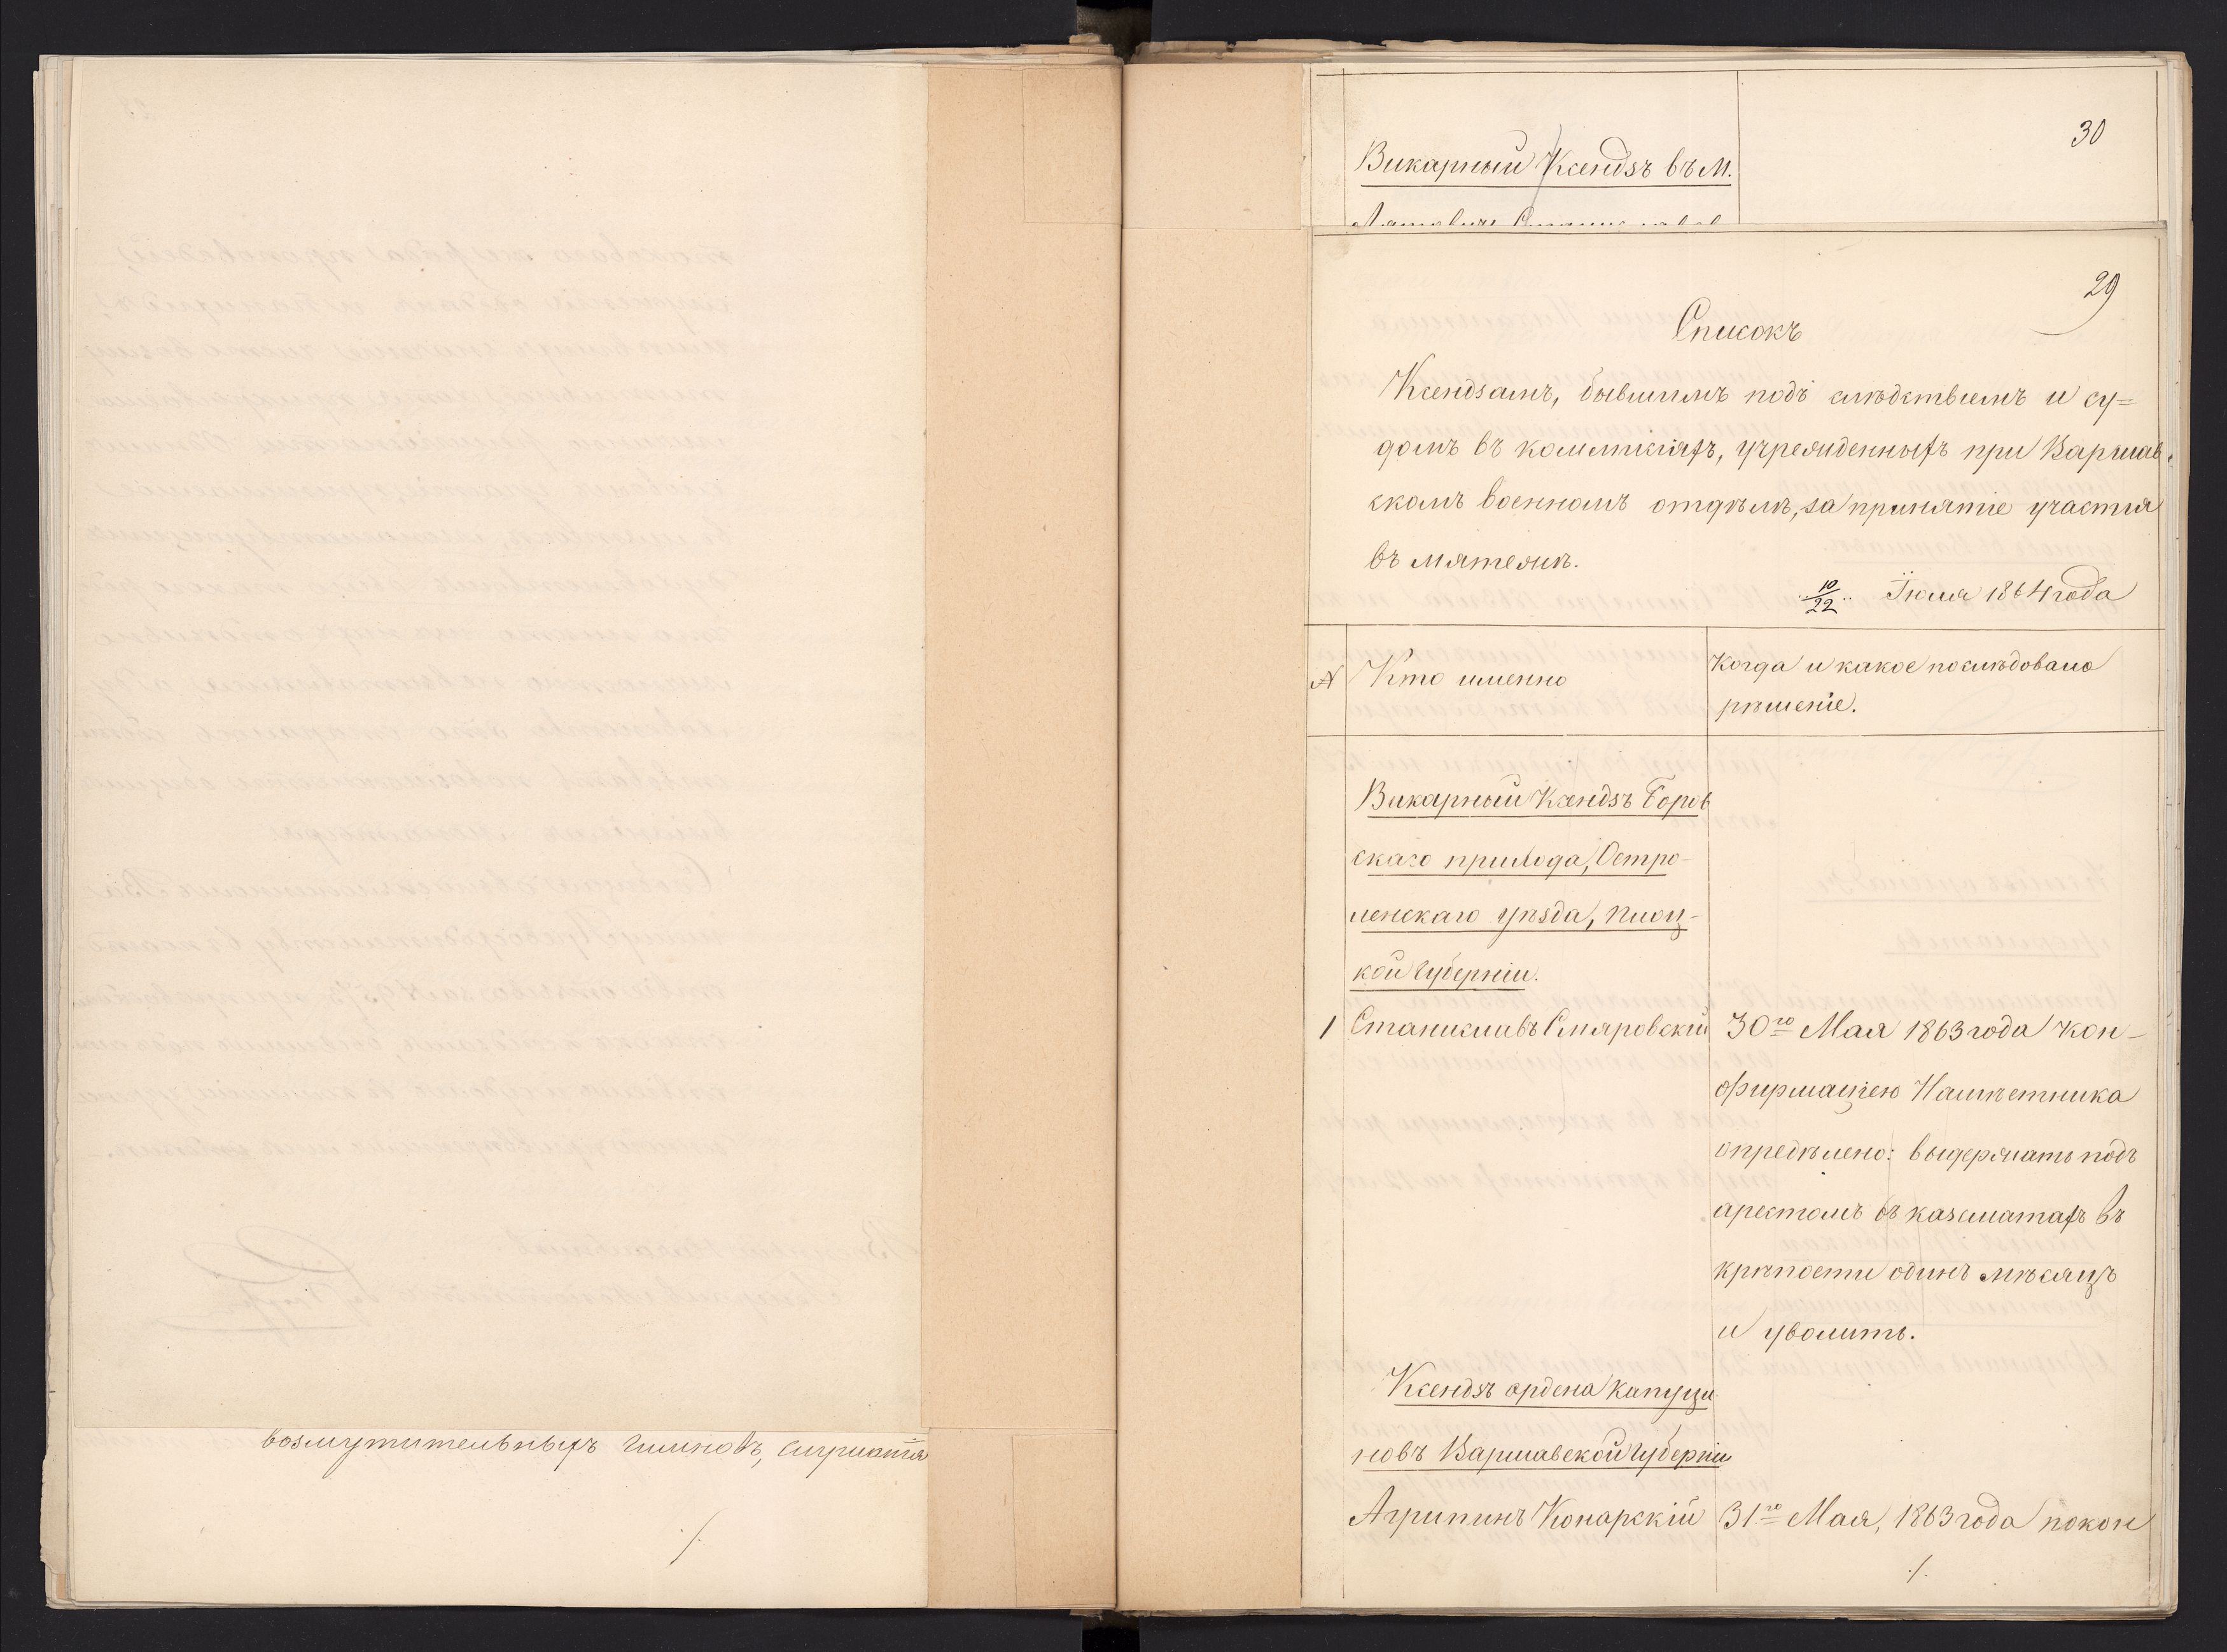 возмутительныхъ гимновъ, слушанія
./.
30
Викарный Ксендзъ въ М.
29
Списокъ
Ксендзамъ, бывшимъ подъ слѣдствіемъ и су=
домъ въ коммисіяхъ, учрежденныхъ при Варшав-
скомъ военномъ отдѣлѣ, за принятіе участія
въ мятежѣ.
10/22 Іюля 1864 года
№ Кто именно
Когда и какое послѣдовало
рѣшеніе.
Викарный Ксендзъ Боров
скаго прихода, Остро-
ленскаго уѣзда, Плоц-
кой Губерніи.
1 Станиславъ Смяровскій
30го Мая 1863 года кон-
фирмаціею Намѣстника
опредѣлено: выдержать подъ
арестомъ въ казематахъ въ
крѣпости одинъ мѣсяцъ
и уволить.
Ксендзъ ордена Капуци
новъ Варшавской Губерніи
Агрипинъ Конарскій
31го Мая, 1863 года по кон
./.